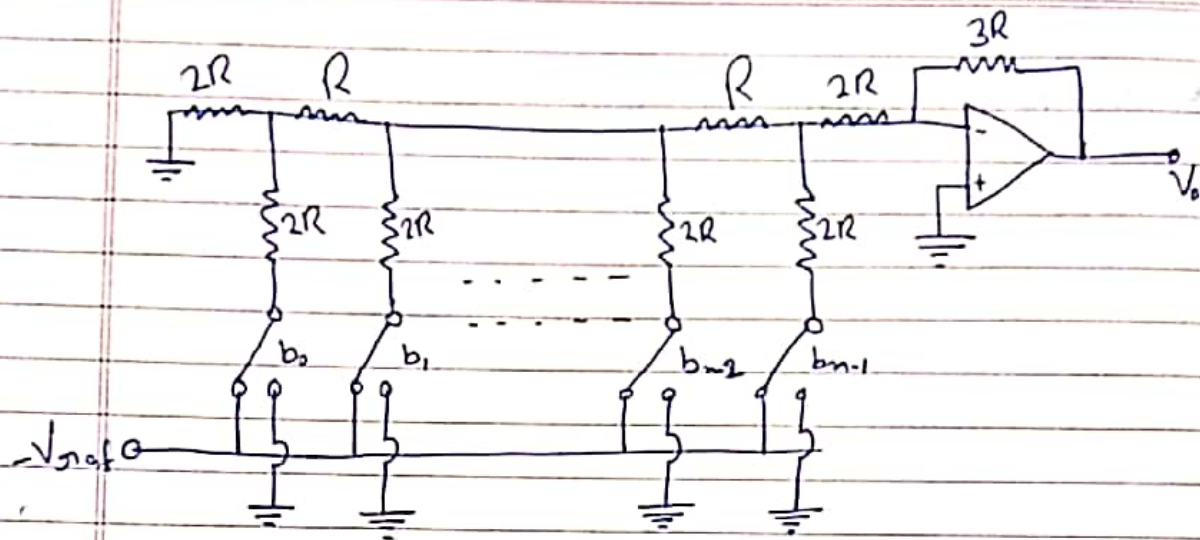 3R
2R R R 2R
-
+
Vo
2R 2R 2R 2R
b0 b1 bn-2 bn-1
-Vref